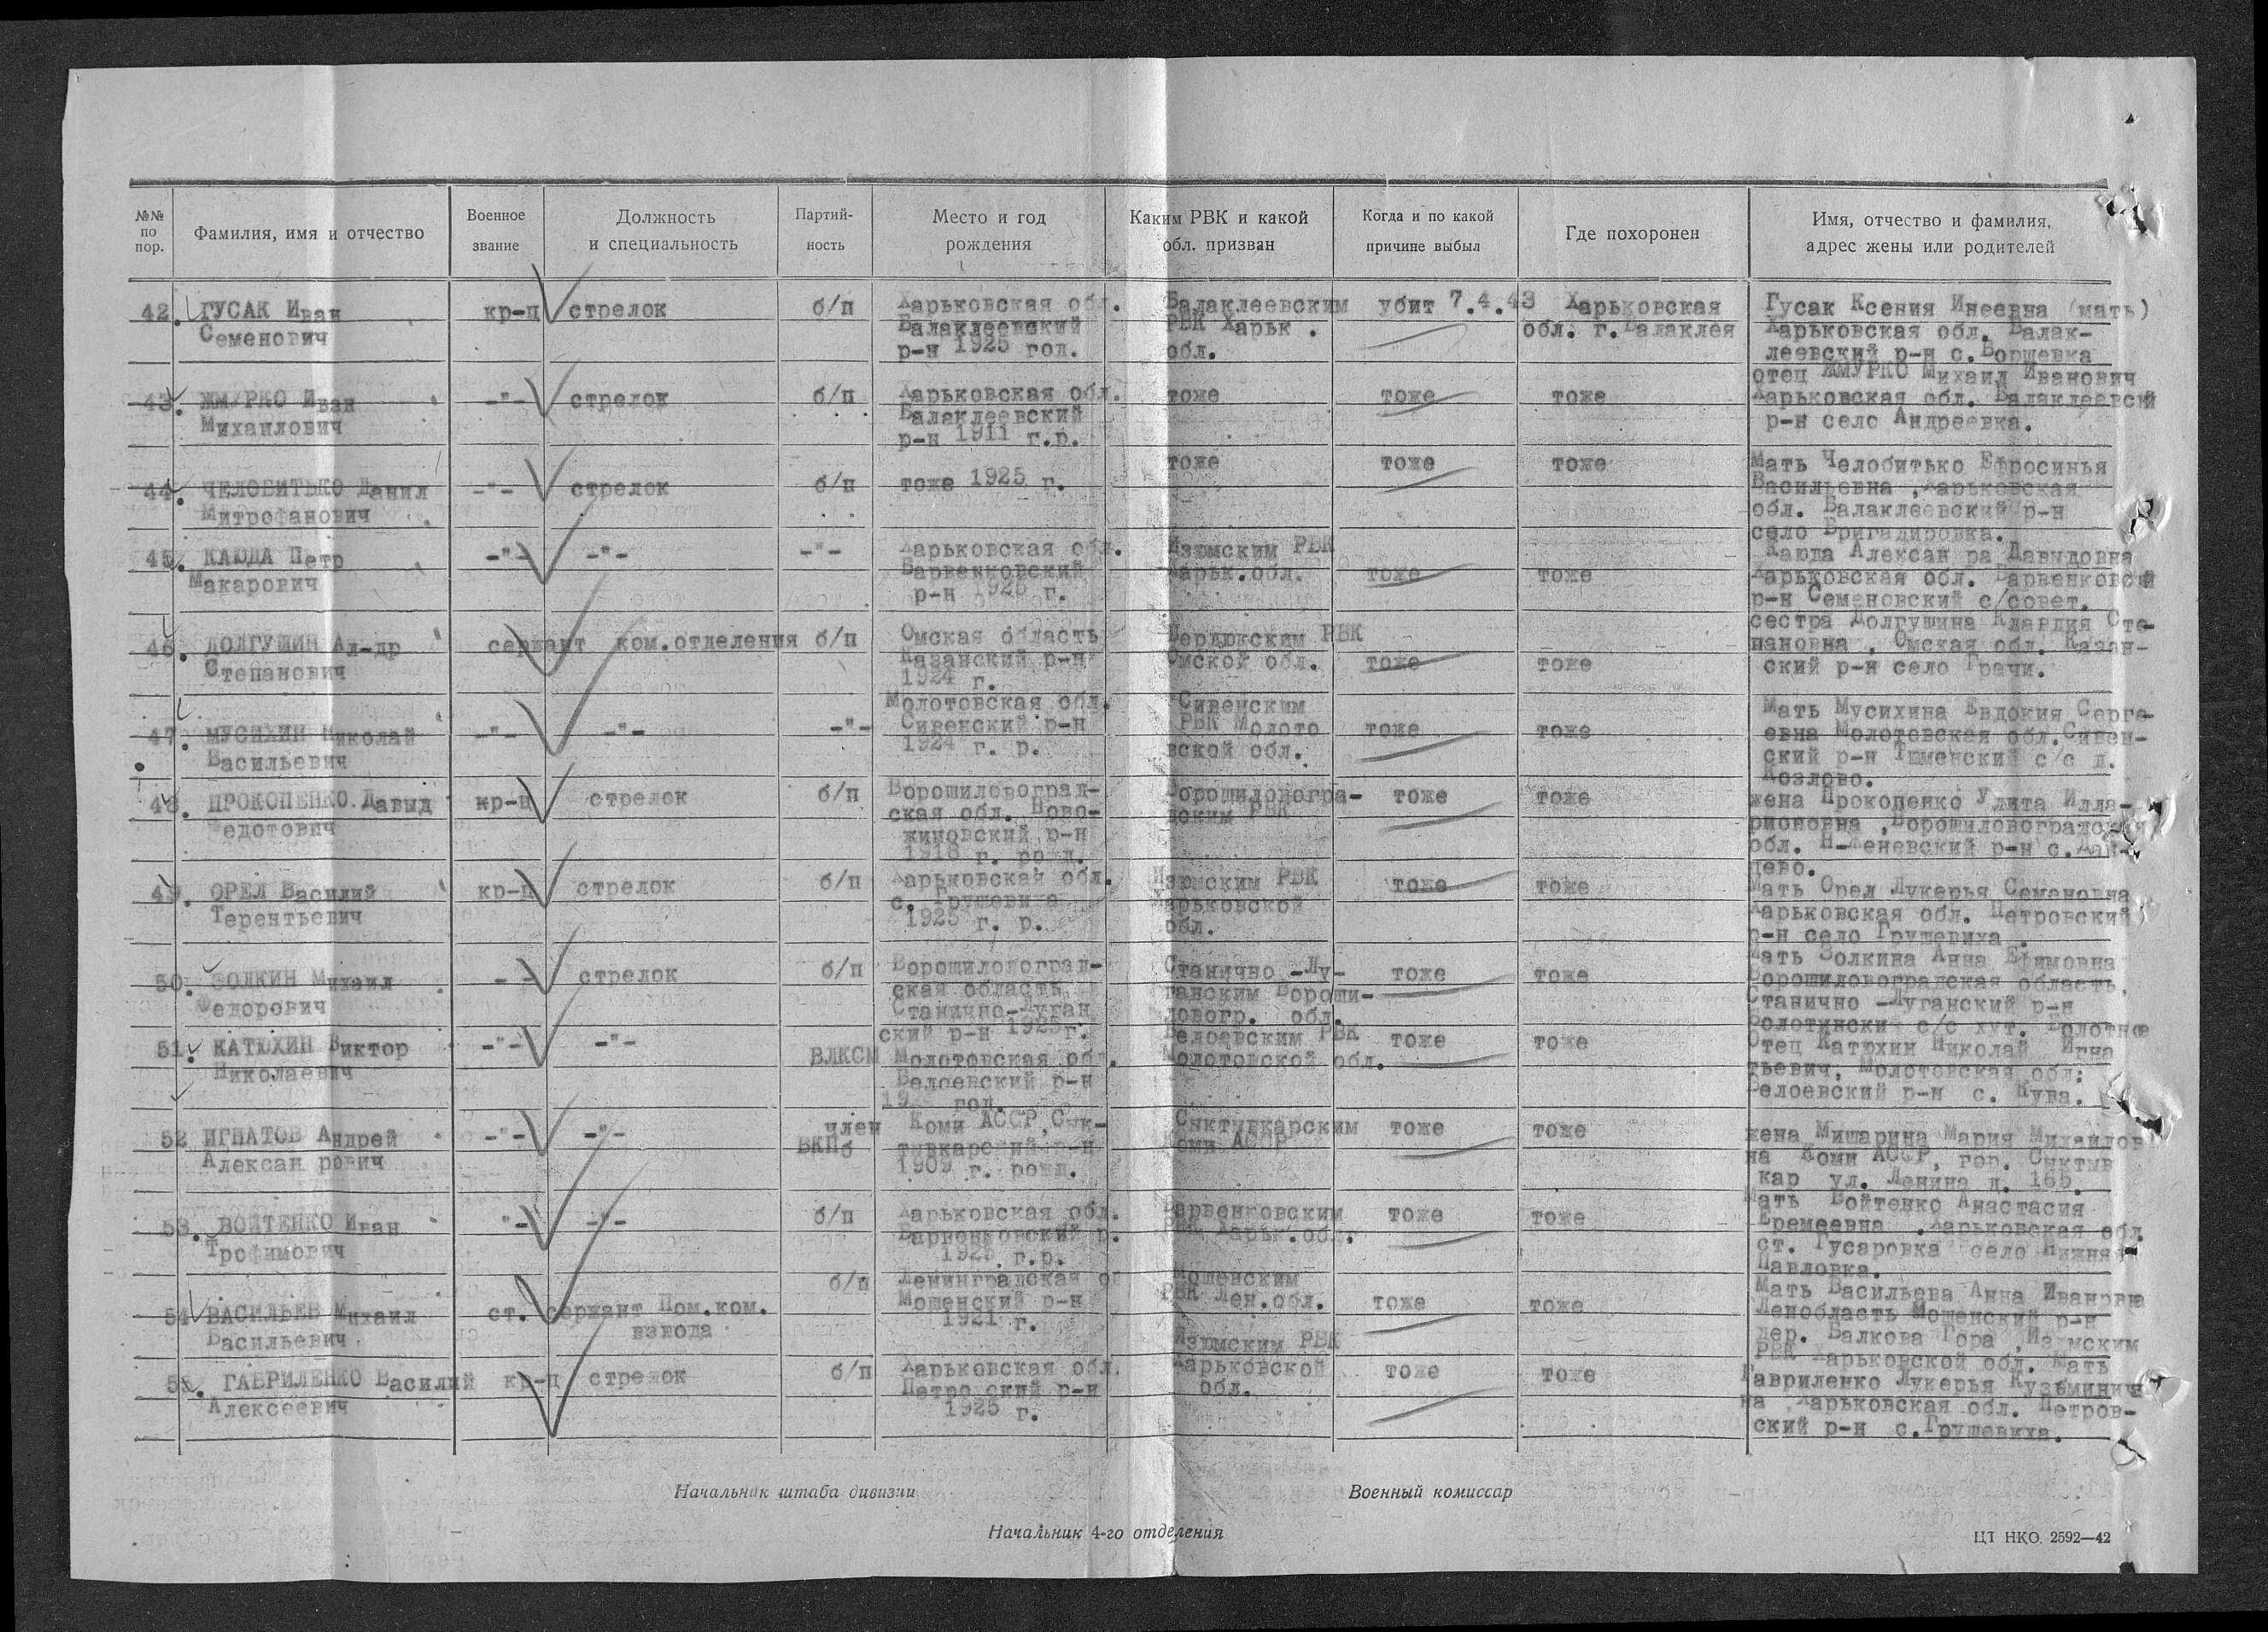 №№ по пор.
Фамилия, имя и отчество
Военное звание
Должность и специальность
Партийность
Место и год рождения
Каким РВК и какой обл. призван
Когда и по какой причине выбыл
Где похоронен
Имя, отчество и фамилия, адрес жены или родителей
42. ГУСАК Иван Семенович кр-ц стрелок б/п Харьковская обл. Балаклеевский р-н 1925 год. Балаклеевским РВК Харьк. обл. убит 7.4.43 Харьковская обл. г. Балаклея Гусак Ксения (мать) Харьковская обл. Балаклеевский р-н с. Борщевка
43. ЖМУРКО Иван Михайлович -"- стрелок б/п Харьковская обл. Балаклеевский р-н 1911 г.р. тоже тоже тоже отец ЖМУРКО Михаил Иванович Харьковская обл. Балаклеевский р-н село Андреевка.
44. ЧЕЛОБИТЬКО Данил Митрофанович -"- стрелок б/п тоже 1925 г. тоже тоже тоже Мать Челобитько Ефросинья Васильевна, Харьковская обл. Балаклеевский р-н село Бригадировка.
45. КАЮДА Петр Макарович -"- -"- -"- Харьковская обл. Барвенковский р-н 1925 г. Изюмским РВК Харьк.обл. тоже тоже Каюда Алексан ра Давыдовна Харьковская обл. Барвенковский р-н Семеновский с/совет.
46. ДОЛГУШИН Ал-др Степанович сержант ком.отделения б/п Омская область Казанский р-н 1924 г. Бердюжским РВК Омской обл. тоже тоже сестра Долгушина Клавдия Степановна, Омская обл. Казанский р-н село Грачи.
47. МУСИХИН Николай Васильевич -"- -"- -"- Молотовская обл. Сивенский р-н 1924 г. р. Сивенским РВК Молотовской обл. тоже тоже Мать Мусихина Евдокия Сергеевна Молотовская обл. Сивенский р-н Тюменский с/с д. Козлово.
48. ПРОКОПЕНКО Давыд Федотович кр-ц стрелок б/п Ворошиловоградская обл. 1918 г. рожд. РВК тоже тоже жена Прокопенко Улита Илларионовна, Ворошиловоградская обл. р-н
49. ОРЕЛ Василий Терентьевич кр-ц стрелок б/п Харьковская обл. с. Грушевиха 1925 г. р. Изюмским РВК Харьковской обл. тоже тоже Мать Орел Лукерья Семеновна Харьковская обл. Петровский р-н село Грушевиха.
50. ЗОЛКИН Михаил Федорович -"- стрелок б/п Ворошиловоградская область Станично-Луганский р-н 1925 г. Станично-Луганским Ворошиловогр. обл. тоже тоже Мать Золкина Анна Ефимовна Ворошиловоградская область, Станично-Луганский р-н Болотинский с/с хут. Болотное
51. КАТЮХИН Виктор Николаевич -"- -"- ВЛКСМ Молотовская обл. Белоевский р-н год. Белоевским РВК Молотовской обл. тоже тоже Отец Катюхин Николай Игнатьевич, Молотовская обл. Белоевский р-н с. Кува.
52 ИГНАТОВ Андрей Алексан рович -"- -"- член ВКПб Коми АССР, Сыктывкарский р-н 1909 г. рожд. Сыктывкарским Коми АССР тоже тоже жена Мишарина Мария Михайловна Коми АССР, гор. Сыктывкар ул. Ленина д. 165.
53. ВОЙТЕНКО Иван Трофимович -"- -"- б/п Харьковская обл. Барвенковский р. 1925 г.р. Барвенковским РВК Харьк.обл. тоже тоже Мать Войтенко Анастасия Еремеевна, Харьковская обл ст. Гусаровка село Нижняя Павловка.
54 ВАСИЛЬЕВ Михаил Васильевич ст. сержант Пом.ком. взвода б/п Ленинградская об Мошенский р-н 1921 г. Мошенским РВК Лен.обл. тоже тоже Мать Васильева Анна Ивановна Ленобласть Мошенский р-н дер. Балкова Гора, Изюмским РВК Харьковской обл. мать
55. ГАВРИЛЕНКО Василий Алексеевич кр-ц стрелок б/п Харьковская обл. Петро ский р-н 1925 г. Изюмским РВК Харьковской обл. тоже тоже Гавриленко Лукерья Кузьминична Харьковская обл. Петровский р-н с.Грушевиха.
Начальник штаба дивизии
Военный комиссар
Начальник 4-го отделения
ЦТ НКО. 2592—42